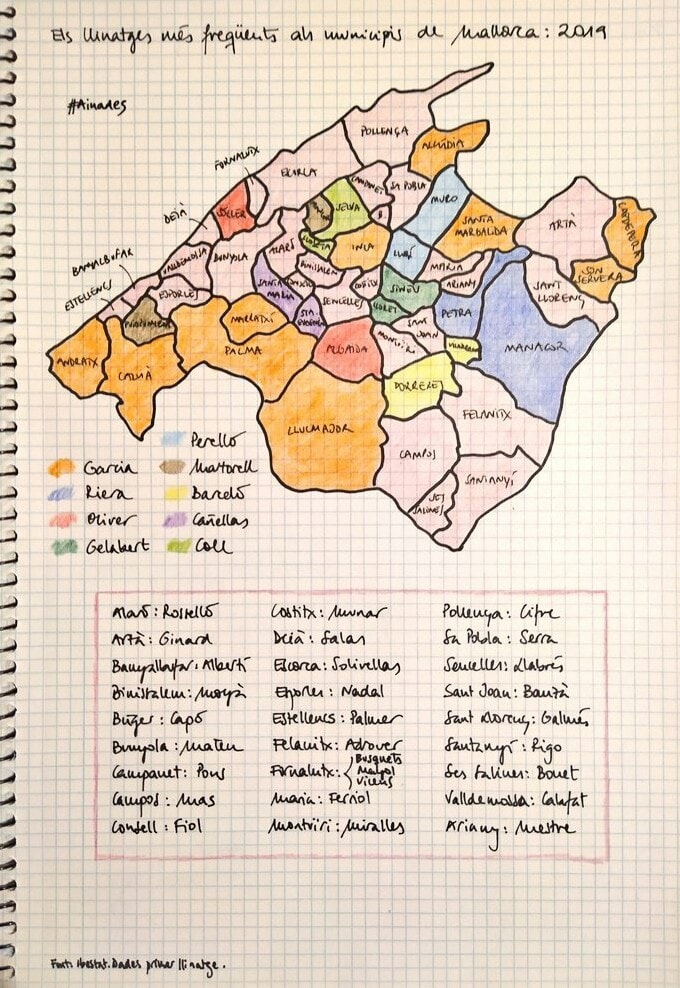 Els llinatges més freqüents als municipis de Mallorca: 2019
#Ainades
POLLENÇA
ALCÚDIA
FORNALUTX
ESCORCA
CAMPANET
SA POBLA
MURO
SÓLLER
SELVA
B.
SANTA MARGALIDA
ARTÀ
CAPDEPERA
DEIÀ
BUNYOLA
ALARÓ
LLOSETA
INCA
LLUBÍ
MARIA
SON SERVERA
BANYALBUFAR
VALLDEMOSSA
BINISSALEM
SANTA MARIA
COSTITX
SINEU
ARIANY
SANT LLORENÇ
ESTELLENCS
ESPORLES
SENCELLES
LLORET
PETRA
PUIGPUNYENT
MARRATXÍ
STA. EUGÈNIA
SANT JOAN
MANACOR
ANDRATX
CALVIÀ
PALMA
ALGAIDA
MONTUÏRI
VILAFRANCA
PORRERES
LLUCMAJOR
FELANITX
CAMPOS
SANTANYÍ
SES SALINES
Perelló
Garcia
Martorell
Riera
Barceló
Oliver
Cañellas
Gelabert
Coll
Alaró: Rosselló
Artà: Ginard
Banyalbufar: Albertí
Binissalem: Moyà
Búger: Capó
Bunyola: Mateu
Campanet: Pons
Campos: Mas
Consell: Fiol
Costitx: Munar
Deià: Salas
Escorca: Solivellas
Esporles: Nadal
Estellencs: Palmer
Felanitx: Adrover
Fornalutx: Busquets
Mayol
Vicens
Maria: Ferriol
Montuïri: Miralles
Pollença: Cifre
Sa Pobla: Serra
Sencelles: Llabrés
Sant Joan: Bauzà
Sant Llorenç: Galmés
Santanyí: Rigo
Ses Salines: Bonet
Valldemossa: Calafat
Ariany: Mestre
Font: Ibestat. Dades primer llinatge.